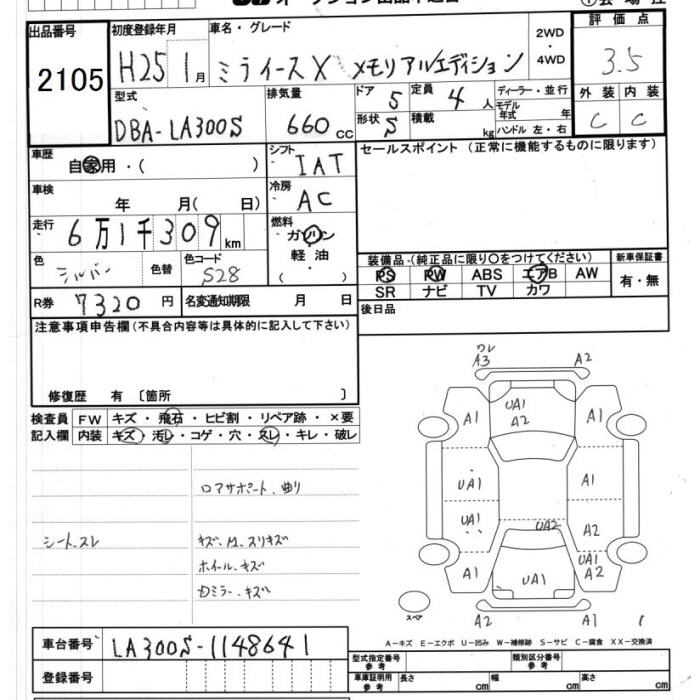 出品番号 2105
初度登録年月 H25 1月
車名・グレード ミライース X メモリアルエディション
2WD・4WD
評価点 3.5
型式 DBA-LA300S
排気量 660cc
ドア 5
定員 4人
形状 5
積載 kg
ディーラー・並行
モデル年式 年
ハンドル 左・右
外装 C 内装 C
車歴 自家用・( )
シフト IAT
セールスポイント (正常に機能するものに限ります)
車検 年 月( 日)
冷房 AC
走行 6万1千309km
燃料 ガソリン・軽油 ( ・ )
色 シルバー 色替 色コード S28
装備品 (純正品に限り○をつけてください)
新車保証書
PS PW ABS エアB AW
有・無
SR ナビ TV カワ
R券 7320円 名変通知期限 月 日
後日品
注意事項申告欄(不具合内容等は具体的に記入して下さい)
修復歴 有 〔箇所 〕
検査員 FW キズ・飛石・ヒビ割・リペア跡・×要
記入欄 内装 キズ・汚レ・コゲ・穴・スレ・キレ・破レ
ワレ
A3 A2
A1 UA1 A2 A1
ロアサポート、曲り
UA1 A1
シート、スレ
キズ、M、スリキズ
UA1 UA2 A2
ホイール、キズ
A1 UA1 UA2 A2
Dミラー、キズ
スペア A2 A1
A-キズ E-エクボ U-凹み W-補修跡 S-サビ C-腐食 XX-交換済
車台番号 LA300S-1148641
型式指定番号 参考
類別区分番号 参考
登録番号
車庫証明用 参考 長さ cm 幅 cm 高さ cm